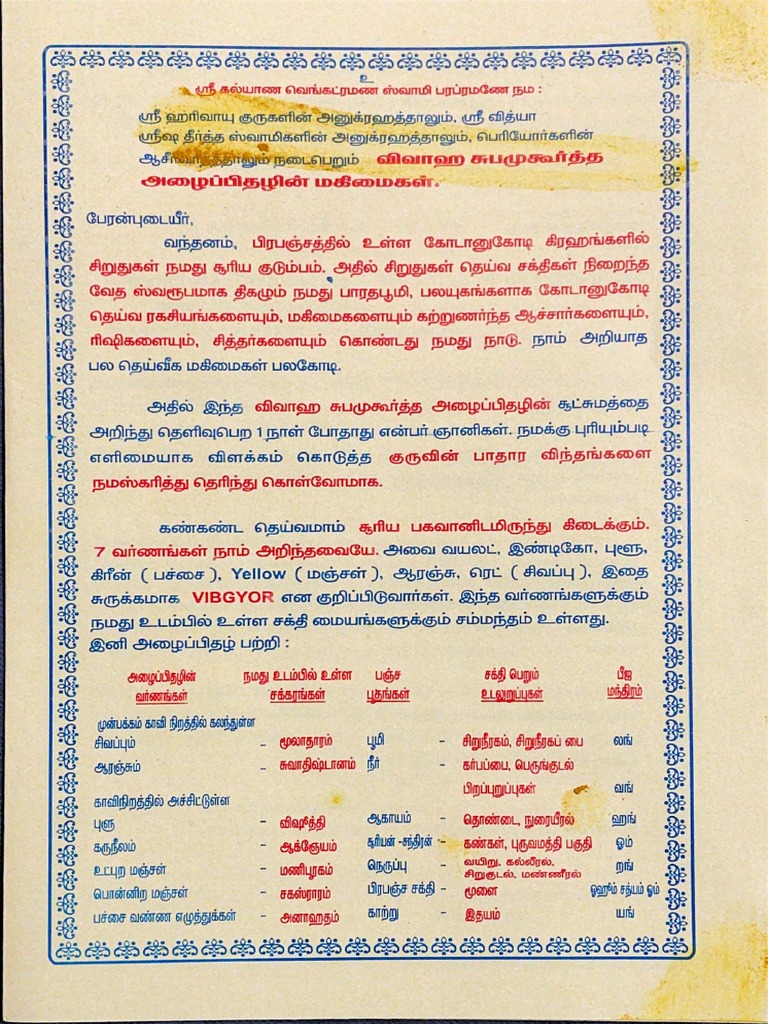 உ
ஸ்ரீ கல்யாண வெங்கட்ரமண ஸ்வாமி பரப்ரமணே நம :
ஸ்ரீ ஹரிவாயு குருகளின் அனுக்ரஹத்தாலும், ஸ்ரீ வித்யா
ஸ்ரீஷ தீர்த்த ஸ்வாமிகளின் அனுக்ரஹத்தாலும், பெரியோர்களின்
ஆசீர்வாதத்தாலும் நடைபெறும் விவாஹ சுபமுகூர்த்த
அழைப்பிதழின் மகிமைகள்.
பேரன்புடையீர்,
வந்தனம், பிரபஞ்சத்தில் உள்ள கோடானுகோடி கிரஹங்களில்
சிறுதுகள் நமது சூரிய குடும்பம். அதில் சிறுதுகள் தெய்வ சக்திகள் நிறைந்த
வேத ஸ்வரூபமாக தீகழும் நமது பாரதபூமி, பலயுகங்களாக கோடானுகோடி
தெய்வ ரகசியங்களையும், மகிமைகளையும் கற்றுணர்ந்த ஆச்சார்களையும்,
ரிஷிகளையும், சித்தர்களையும் கொண்டது நமது நாடு. நாம் அறியாத
பல தெய்வீக மகிமைகள் பலகோடி.
அதில் இந்த விவாஹ சுபமுகூர்த்த அழைப்பிதழின் சூட்சுமத்தை
அறிந்து தெளிவுபெற 1 நாள் போதாது என்பர் ஞானிகள். நமக்கு புரியும்படி
எளிமையாக விளக்கம் கொடுத்த குருவின் பாதார விந்தங்களை
நமஸ்கரித்து தெரிந்து கொள்வோமாக.
கண்கண்ட தெய்வமாம் சூரிய பகவானிடமிருந்து கிடைக்கும்.
7 வர்ணங்கள் நாம் அறிந்தவையே. அவை வயலட், இண்டிகோ, புளூ,
கிரீன் ( பச்சை ), Yellow ( மஞ்சள் ), ஆரஞ்சு, ரெட் ( சிவப்பு ), இதை
சுருக்கமாக VIBGYOR என குறிப்பிடுவார்கள். இந்த வர்ணங்களுக்கும்
நமது உடம்பில் உள்ள சக்தி மையங்களுக்கும் சம்மந்தம் உள்ளது.
இனி அழைப்பிதழ் பற்றி :
அழைப்பிதழின் நமது உடம்பில் உள்ள பஞ்ச சக்தி பெறும் பீஜ
வர்ணங்கள் சக்கரங்கள் பூதங்கள் உடலுறுப்புகள் மந்திரம்
முன்பக்கம் காவி நிறத்தில் கலந்துள்ள
சிவப்பும் - மூலாதாரம் பூமி - சிறுநீரகம், சிறுநீரகப் பை லங்
ஆரஞ்சும் - சுவாதிஷ்டானம் நீர் - கர்பப்பை, பெருங்குடல்
பிறப்புறுப்புகள் வங்
காவிநிறத்தில் அச்சிட்டுள்ள
புளு - விஷுத்தி ஆகாயம் - தொண்டை, நுரையீரல் ஹங்
கருநீலம் - ஆக்ஞேயம் சூரியன் -சந்திரன் - கண்கள், புருவமத்தி பகுதி ஓம்
உட்புற மஞ்சள் - மணிபூரகம் நெருப்பு - வயிறு, கல்லீரல், சிறுகுடல், மண்ணீரல் றங்
பொன்னிற மஞ்சள் - சகஸ்ராரம் பிரபஞ்ச சக்தி - மூளை ஓஹம் சத்யம் ஓம்
பச்சை வண்ண எழுத்துக்கள் - அனாஹதம் காற்று - இதயம் யங்